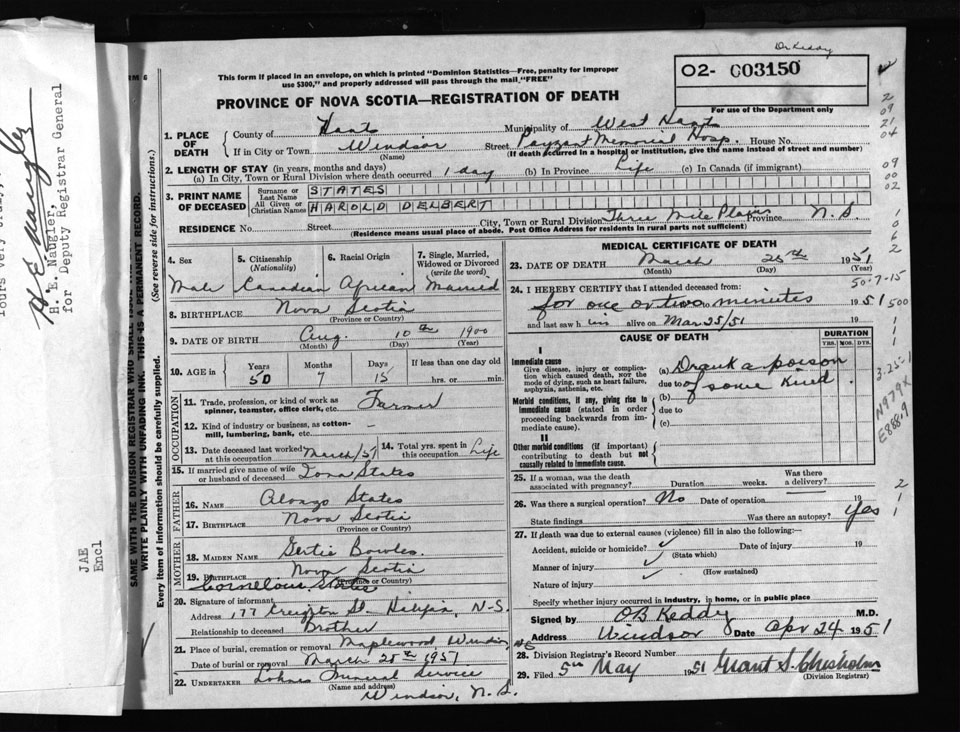 Dr Keddy
This form if placed in an envelope, on which is printed "Dominion Statistics—Free, penalty for improper
use $300," and properly addressed will pass through the mail "FREE"
02- 003150
For use of the Department only
PROVINCE OF NOVA SCOTIA—REGISTRATION OF DEATH
1. PLACE OF DEATH County of Hants Municipality of West Hants
If in City or Town Windsor (Name) Street Payzant Memorial Hosp. House No.
(If death occurred in a hospital or institution, give the name instead of street and number)
2. LENGTH OF STAY (in years, months and days)
(a) In City, Town or Rural Division where death occurred 1 day (b) In Province Life (c) In Canada (if immigrant)
3. PRINT NAME OF DECEASED Surname or Last Name STATES
All Given or Christian Names HAROLD DELBERT
RESIDENCE No. Street City, Town or Rural Division Three Mile Plains Province N.S.
(Residence means usual place of abode. Post Office Address for residents in rural parts not sufficient)
4. Sex 5. Citizenship (Nationality) 6. Racial Origin 7. Single, Married, Widowed or Divorced (write the word)
Male Canadian African Married
8. BIRTHPLACE Nova Scotia
(Province or Country)
9. DATE OF BIRTH Aug. 10th 1900
(Month) (Day) (Year)
10. AGE in Years Months Days If less than one day old
50 7 15 hrs. or min.
OCCUPATION
11. Trade, profession, or kind of work as spinner, teamster, office clerk, etc. Farmer
12. Kind of industry or business, as cotton-mill, lumbering, bank, etc. —
13. Date deceased last worked at this occupation March/51 14. Total yrs. spent in this occupation Life
15. If married give name of wife or husband of deceased Iona States
FATHER
16. NAME Alonzo States
17. BIRTHPLACE Nova Scotia
(Province or Country)
MOTHER
18. MAIDEN NAME Gertie Bowles
19. BIRTHPLACE Nova Scotia
(Province or Country)
Cornelious States
20. Signature of informant
Address 177 Creighton St. Halifax, N-S.
Relationship to deceased Brother
21. Place of burial, cremation or removal Maplewood Windsor
Date of burial or removal March 28th 1951
22. UNDERTAKER Lohnes Funeral Service
(Name and address)
Windsor, N.S.
MEDICAL CERTIFICATE OF DEATH
23. DATE OF DEATH March 25th 1951
(Month) (Day) (Year)
50-7-15
24. I HEREBY CERTIFY that I attended deceased from:
for one or two to minutes 1951
and last saw him alive on Mar 25/51
CAUSE OF DEATH DURATION
YRS. MOS. DYS.
I
Immediate cause
Give disease, injury or complication which caused death, NOT the mode of dying, such as heart failure, asphyxia, asthenia, etc.
(a) Drank a poison
due to of some kind.
Morbid conditions, if any, giving rise to immediate cause (stated in order proceeding backwards from immediate cause).
(b)
due to
(c)
II
Other morbid conditions (if important) contributing to death but not causally related to immediate cause.
25. If a woman, was the death associated with pregnancy? Duration weeks. Was there a delivery?
26. Was there a surgical operation? No Date of operation 19
State findings Was there an autopsy? Yes
27. If death was due to external causes (violence) fill in also the following:
Accident, suicide or homicide? Date of injury 19
(State which)
Manner of injury
(How sustained)
Nature of injury
Specify whether injury occurred in industry, in home, or in public place
Signed by OB Keddy M.D.
Address Windsor Date Apr 24 1951
28. Division Registrar's Record Number #6
29. Filed 5th May 1951 Grant S. Chisholm
(Division Registrar)
2
09
21
04
09
00
02
1
0
6
2
500
1
1
1
3-25-1
N979X
E888.9
2
1
1
RM 6
SAME WITH THE DIVISION REGISTRAR WHO SHALL ISSUE
WRITE PLAINLY WITH UNFADING INK. THIS IS A PERMANENT RECORD.
Every item of information should be carefully supplied. (See reverse side for instructions.)
H. E. Naugler
H. E. Naugler,
for Deputy Registrar General
JAE
Encl